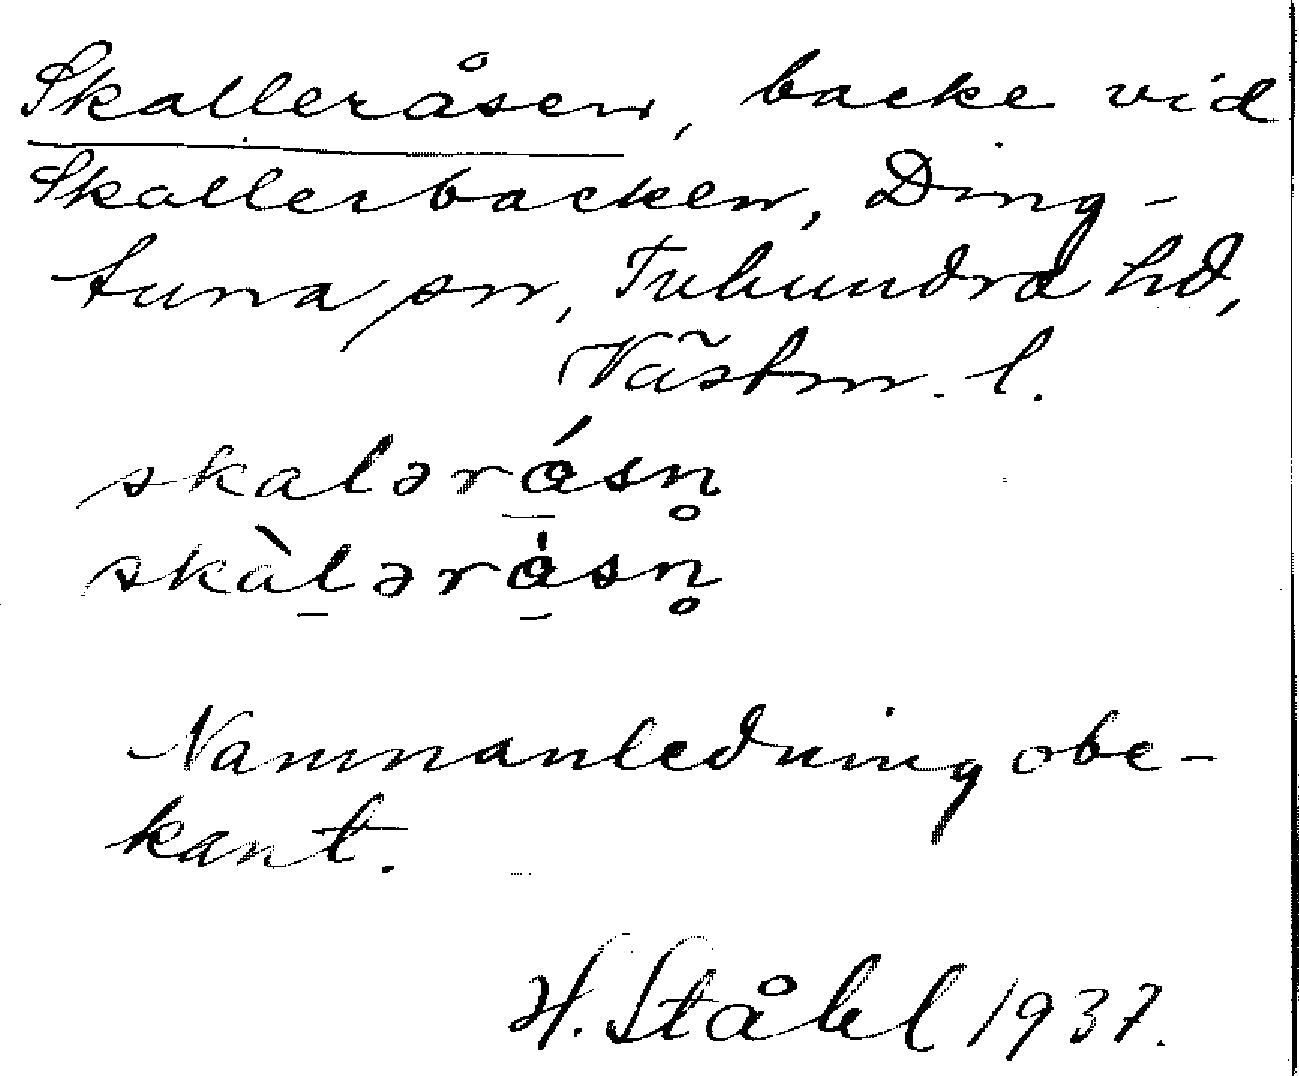 Skalleråsen, backe vid
Skallerbacken, Ding-
tuna sn, Tuhundra hd,
Västm. l.
skalərǻ̱sn̥
skàḻərå̱̍sn̥
Namnanledning obe-
kant.
H. Ståhl 1937.